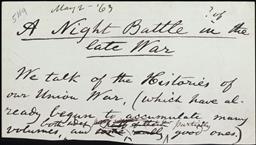 May 2 - '63
549
A Night Battle in the
late War
We talk of the Histories of
our Union War, (which have al-
ready begun to accumulate many
both deep partially
volumes, and good ones)